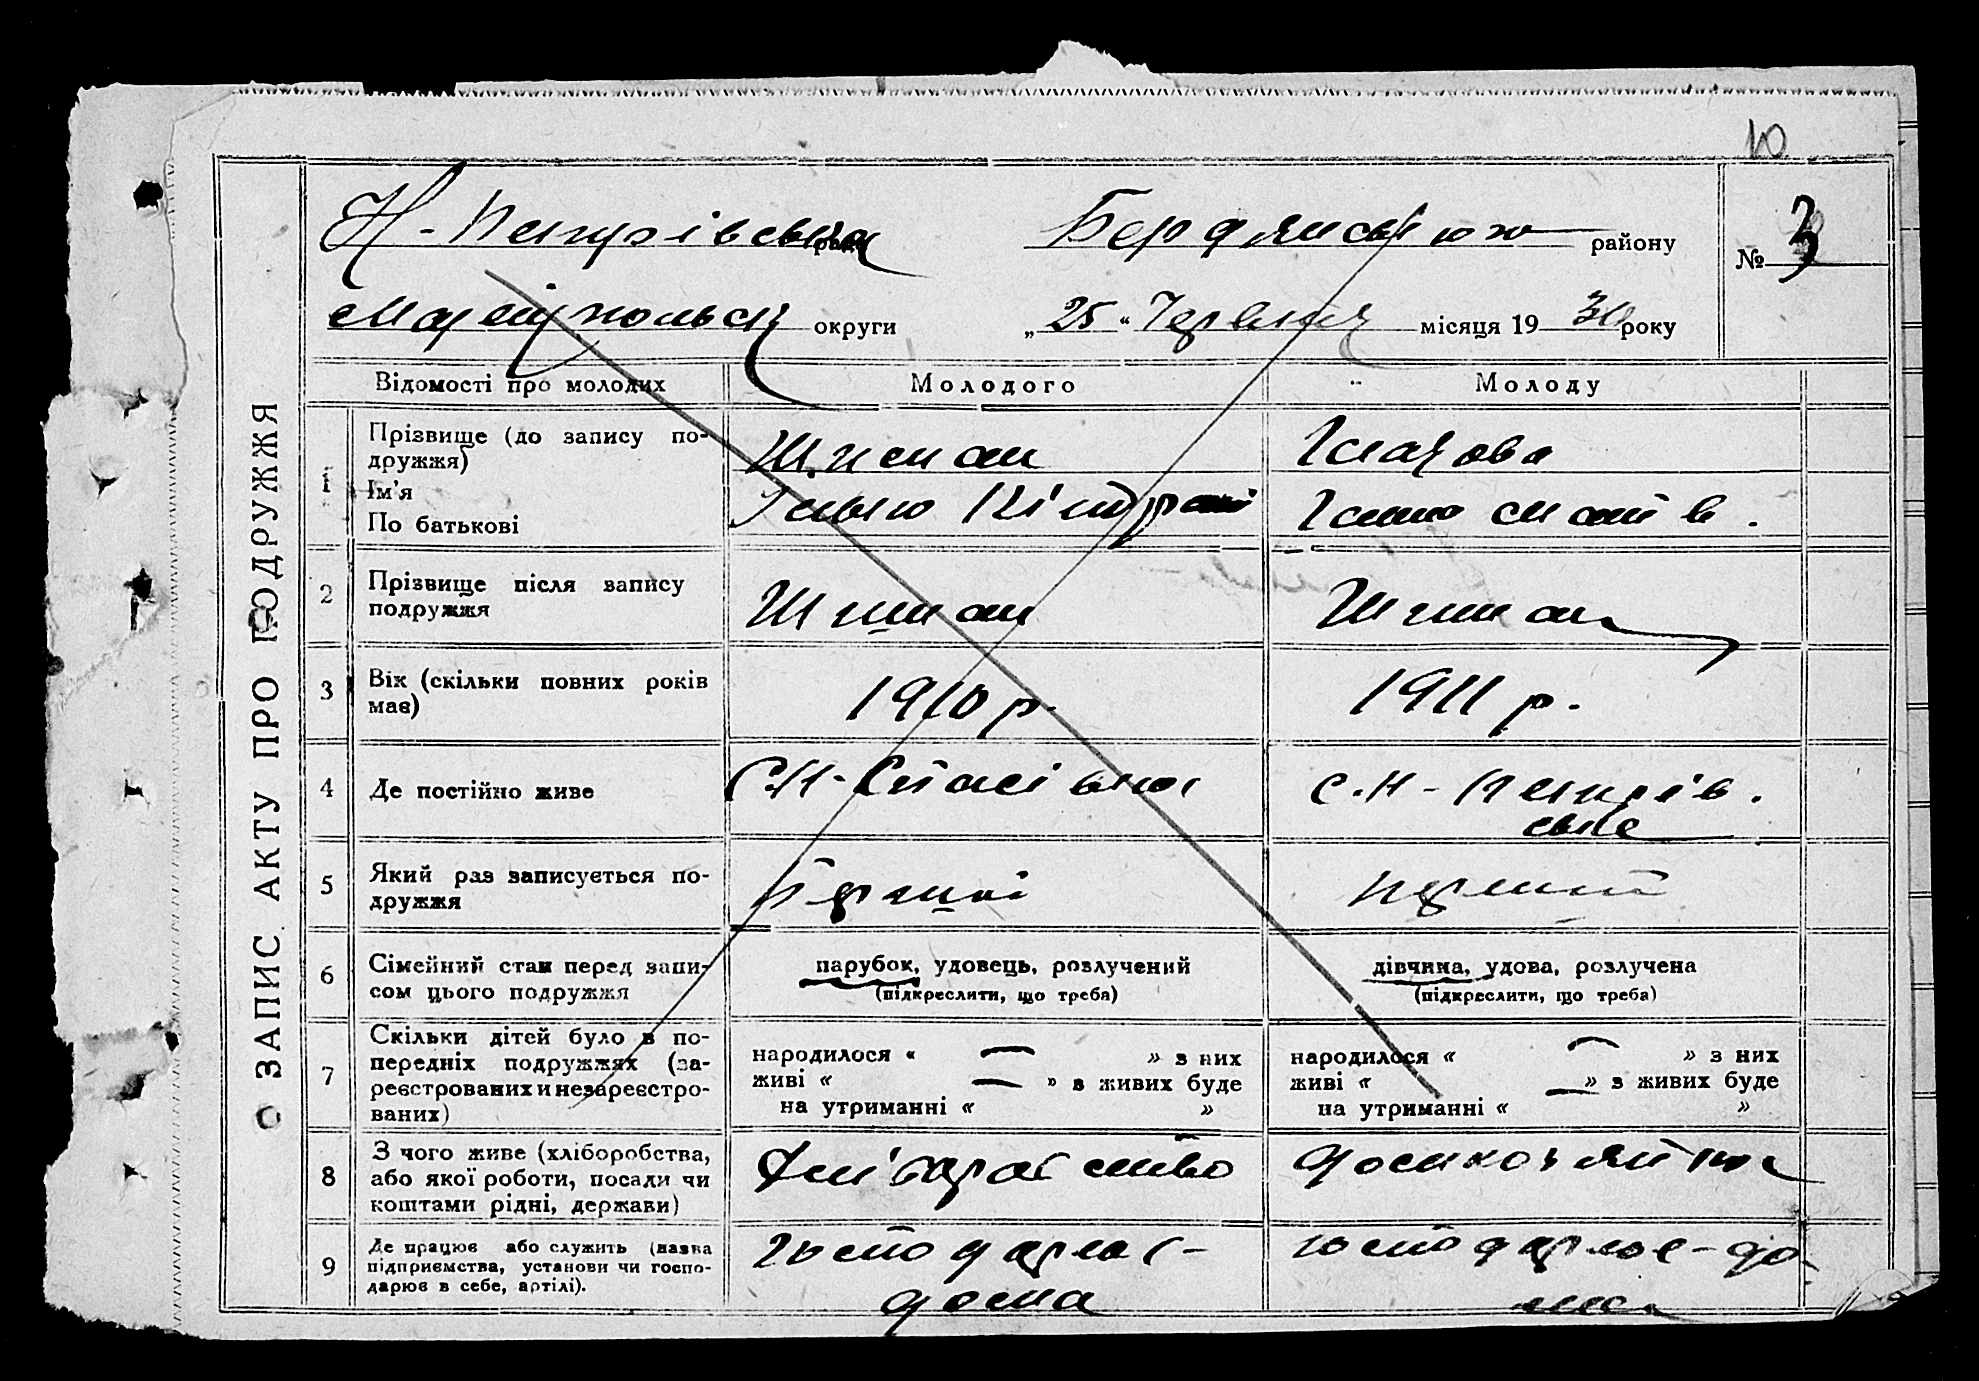 10
Н-Петрівська ради Бердянськюю району
№ 3
Маріупольськ округи „25“ Червня місяця 1930 року
ЗАПИС АКТУ ПРО ПОДРУЖЖЯ
Відомості про молодих Молодого Молоду
1 Прізвище (до запису по-
дружжя)
Ім'я
По батькові
Шишман
Ілью
2 Прізвище після запису
подружжя
Шишман Шишман
3 Вік (скільки повних років
має)
1910 р. 1911 р.
4 Де постійно живе
С.Н-Спасівка с.Н-Петрів.
ське
5 Який раз записується по-
дружжя
Перший перший
6 Сімейний стан перед запи-
сом цього подружжя
парубок, удовець, розлучений
(підкреслити, що треба)
дівчина, удова, розлучена
(підкреслити, що треба)
7 Скільки дітей було в по-
передніх подружжях (за-
реєстрованих и незареєстро-
ваних)
народилося « — » з них
живі « — » з живих буде
на утриманні « »
народилося « — » з них
живі « — » з живих буде
на утриманні « »
8 З чого живе (хліборобства,
або якої роботи, посади чи
коштами рідні, держави)
Хліборобство домохозяйка
9 Де працює або служить (назва
підприємства, установи чи госпо-
дарює в себе, артілі).
господарює-
дома
господарює-до-
ма